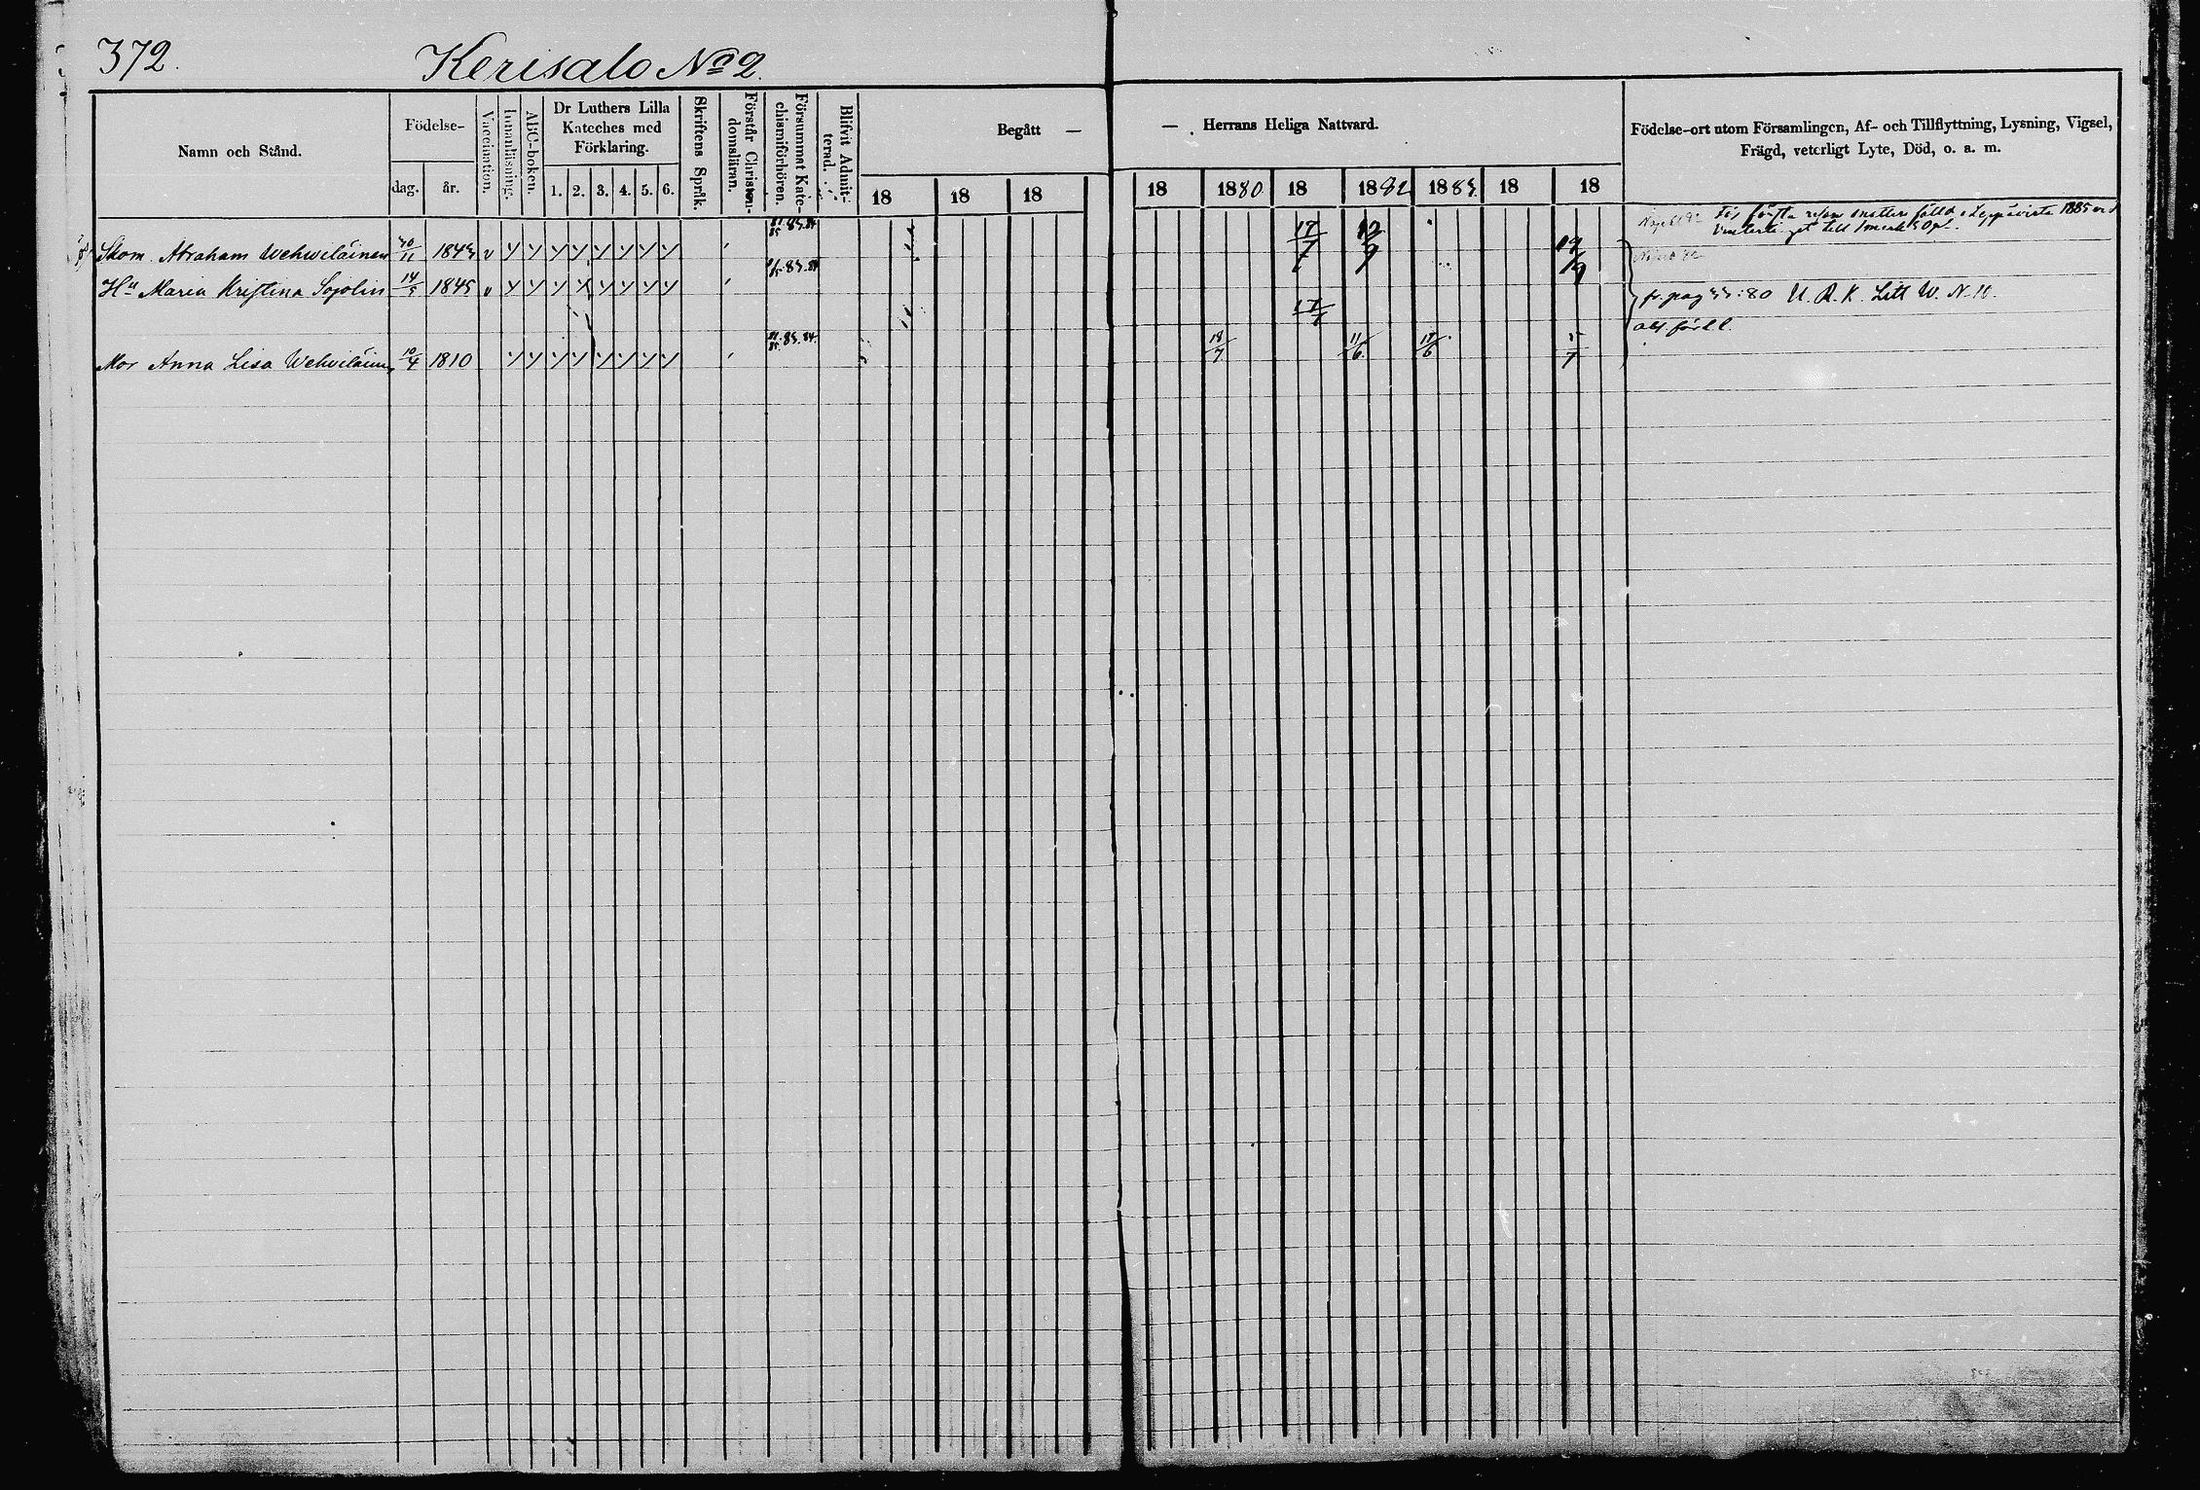 372.
Kerisalo No 2.
Namn och Stånd.
Födelse-
dag.
år.
Vaccination.
Innanläsning.
ABC-boken.
Dr Luthers Lilla
Kateches med
Förklaring.
1. 2. 3. 4. 5. 6.
Skriftens Språk.
Förstår Christen-
domsläran.
Försummat Kate-
chismiförhören.
Blifvit Admit-
terad.
Begått —
18 18 18
— Herrans Heliga Nattvard.
18 1880 18 1882 1883. 18 18
Födelse-ort utom Församlingen, Af- och Tillflyttning, Lysning, Vigsel,
Frägd, veterligt Lyte, Död, o. a. m.
första resan 1885
Skom. Abraham Wehwiläinen 30/11 1843 v y y y y y y y y 83.84 17/7 12/9 19/9
Hu Maria Kristina Sojolin 14/5 1845 v y y y y y y y y 83.84 17/7
fr. pag 33:80 U. R. K. Litt W. N.
Mor Anna Lisa Wehwiläinen 10/4 1810 y y y y y y y y 83.84. 18/7 11/6 17/6 5/7